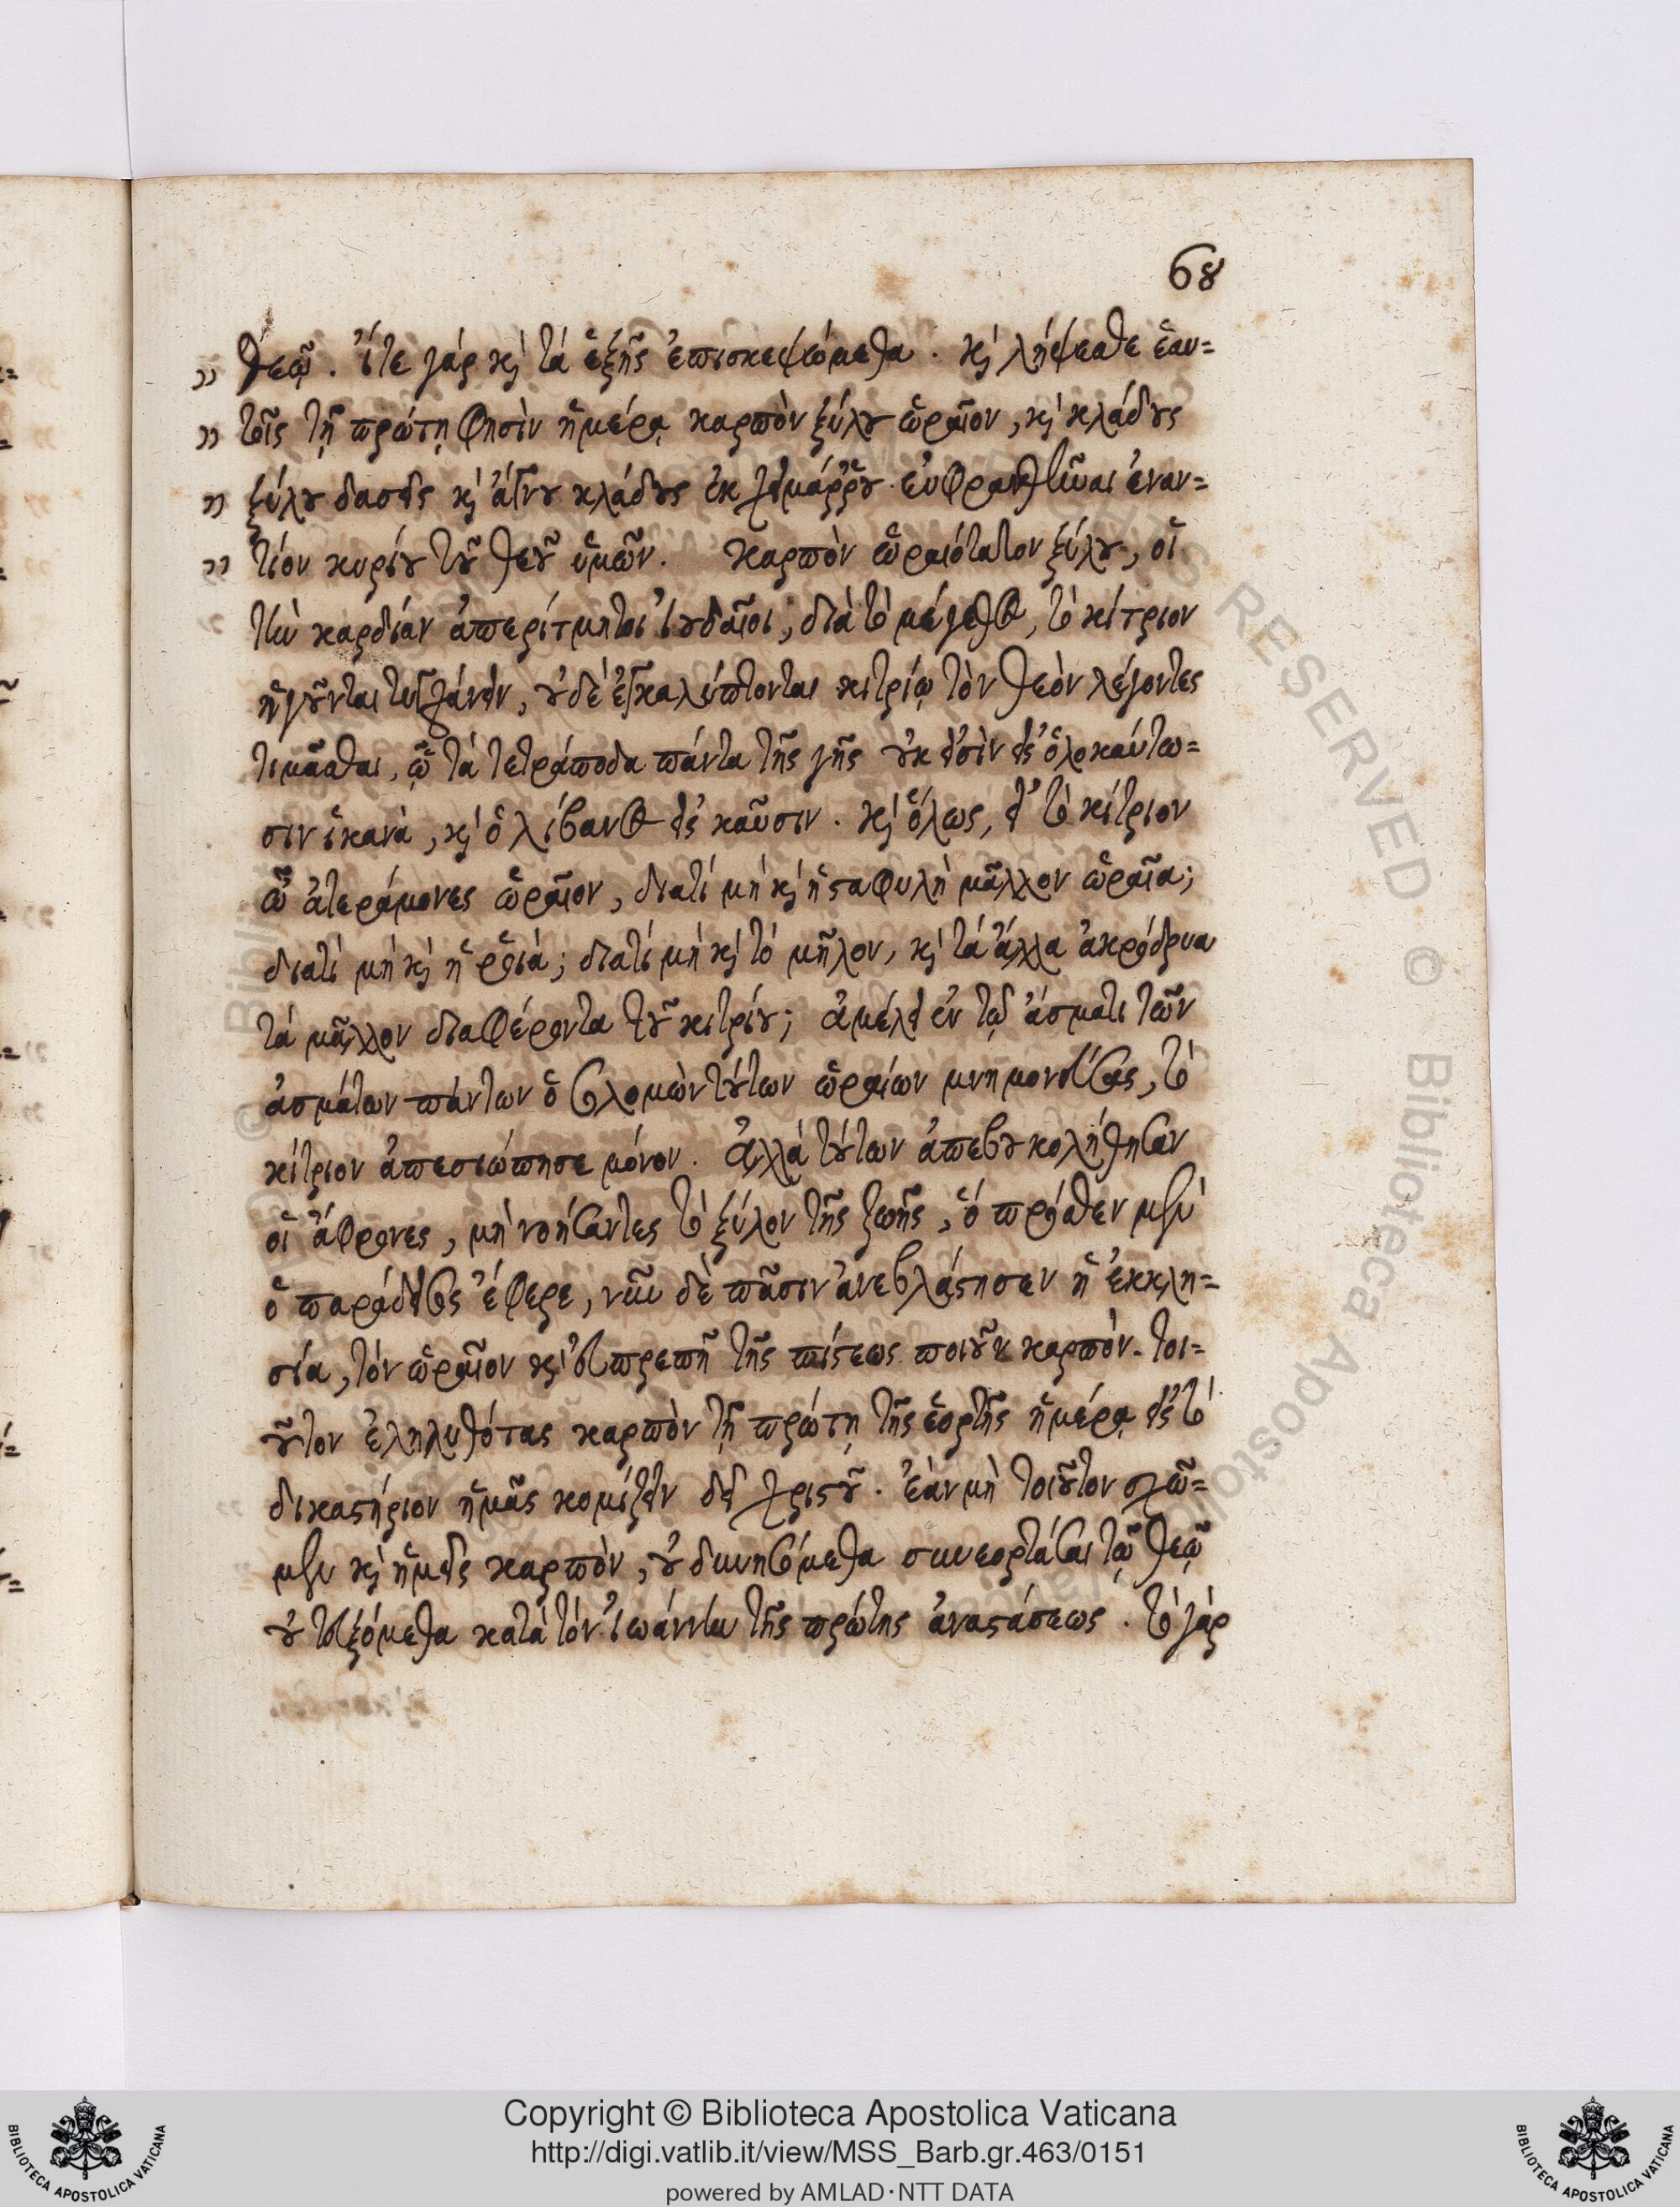 68
„ θεῷ. ἴτε γάρ κ̀ τὰ ἑξῆς ἐπισκεψώμεθα. κ̀ λήψεσθε ἑαυ=
„ τοῖς τῇ πρώτῃ φησὶν ἡμέρᾳ καρπὸν ξύλου ὡραῖον, κ̀ κλάδους
„ ξύλου δασεῖς κ̀ ἄγνου κλάδους ἐκ χειμάῤῥου. εὐφρανθῆναι ἐναν=
„ τίον κυρίου τοῦ θεοῦ ὑμῶν. καρπὸν ὡραιότατον ξύλου, οἱ
τὴν καρδίαν ἀπερίτμητοι ἰουδαῖοι, διὰ τὸ μέγεθος, τὸ κίτριον
ἡγοῦνται τυγχάνειν, οὐδὲ ἐγκαλύπτονται κιτρίῳ τὸν θεὸν λέγοντες
τιμᾶσθαι, ᾧ τὰ τετράποδα πάντα τῆς γῆς οὐκ εἰσὶν εἰς ὁλοκαύτω=
σιν ἱκανὰ, κ̀ ὁ λίβανος εἰς καῦσιν. κ̀ ὅλως, εἰ τὸ κίτριον
ὦ ἀτεράμονες ὡραῖον, διατί μὴ κ̀ ἡ σταφυλὴ μᾶλλον ὡραῖα;
διατί μὴ κ̀ ἡ ῥοιά; διατί μὴ κ̀ τὸ μῆλον, κ̀ τὰ ἄλλα ἀκρόδρυα
τὰ μᾶλλον διαφέροντα τοῦ κιτρίου; ἀμέλει ἐν τῷ ἄσματι τῶν
ἀσμάτων πάντων ὁ σολομὼν τούτων ὡραίων μνημονεύσας, τὸ
κίτριον ἀπεσιώπησε μόνον. Ἀλλὰ τούτων ἀπεβουκολήθησαν
οἱ ἄφρονες, μὴ νοήσαντες τὸ ξύλον τῆς ζωῆς, ὃ πρόσθεν μὲν
ὁ παράδεισος ἔφερε, νῦν δὲ πᾶσιν ἀνεβλάστησεν ἡ ἐκκλη=
σία, τὸν ὡραῖον κ̀ εὐπρεπῆ τῆς πίστεως ποιοῦν καρπόν. τοι=
οῦτον ἐληλυθότας καρπὸν τῇ πρώτῃ τῆς ἑορτῆς ἡμέρᾳ εἰς τὸ
δικαστήριον ἡμᾶς κομίζειν δεῖ χριστοῦ. ἐὰν μὴ τοιοῦτον σχῶ=
μεν κ̀ ἡμεῖς καρπὸν, οὐ δυνησόμεθα συνεορτάσαι τῷ θεῷ
οὐ τευξόμεθα κατὰ τὸν ἰωάννην τῆς πρώτης ἀναστάσεως. τὸ γάρ
Copyright © Biblioteca Apostolica Vaticana
http://digi.vatlib.it/view/MSS_Barb.gr.463/0151
powered by AMLAD·NTT DATA